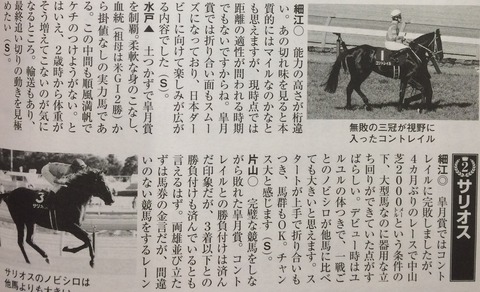 無敗の三冠が視野に
入ったコントレイル
細江〇　能力の高さが桁違
い。あの切れ味を見ると本
質的にはマイルなのかなと
も思えますが、現時点では
距離の適性が問われる時期
でもないですからね。皐月
賞では折り合い面もスムー
ズになっており、日本ダー
ビーに向けて楽しみが広が
る内容でした（Ｓ）。
水戸▲　土つかずで皐月賞
を制覇。柔軟な身のこなし、
血統（祖母は米ＧⅠ２勝）か
ら掛値なしの実力馬であ
る。この中間も順風満帆で
ケチのつけようがない。と
はいえ、２歳時から体重が
そう増えてこないのが気に
なるところ。輸送もあり、
最終追い切りの動きを見極
めたい（Ｓ）。
サリオス
細江◎　皐月賞ではコント
レイルに完敗しましたが、
４カ月ぶりのレースで中山
芝2000㍍という条件の
下、大型馬なのに器用な立
ち回りができていた点がす
ばらしい。デビュー時はユ
ルユルの体つきで、一戦ご
とのノビシロが他馬に比べ
ても大きいと思えます。ス
タートが上手で折り合いも
つき、馬群もＯＫ。チャン
ス大と感じます（Ｓ）。
片山〇　完璧な競馬をしな
がら敗れた皐月賞。コント
レイルとの勝負付けは済ん
だ印象だが、３着以下との
勝負付けも済んでいるとも
言えるはず。両雄並び立た
ずは馬券の金言だが、間違
いのない競馬をするレーン
サリオスのノビシロは
他馬よりも大きい